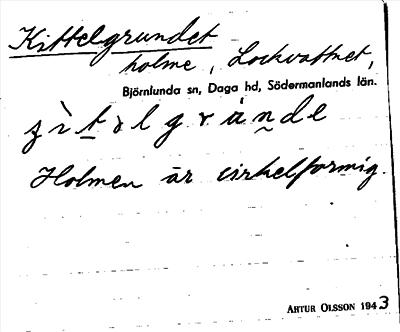 Kittelgrundet
holme, Lockvattnet,
Björnlunda sn, Daga hd, Södermanlands län.
Holmen är cirkelformig.
ARTUR OLSSON 1943